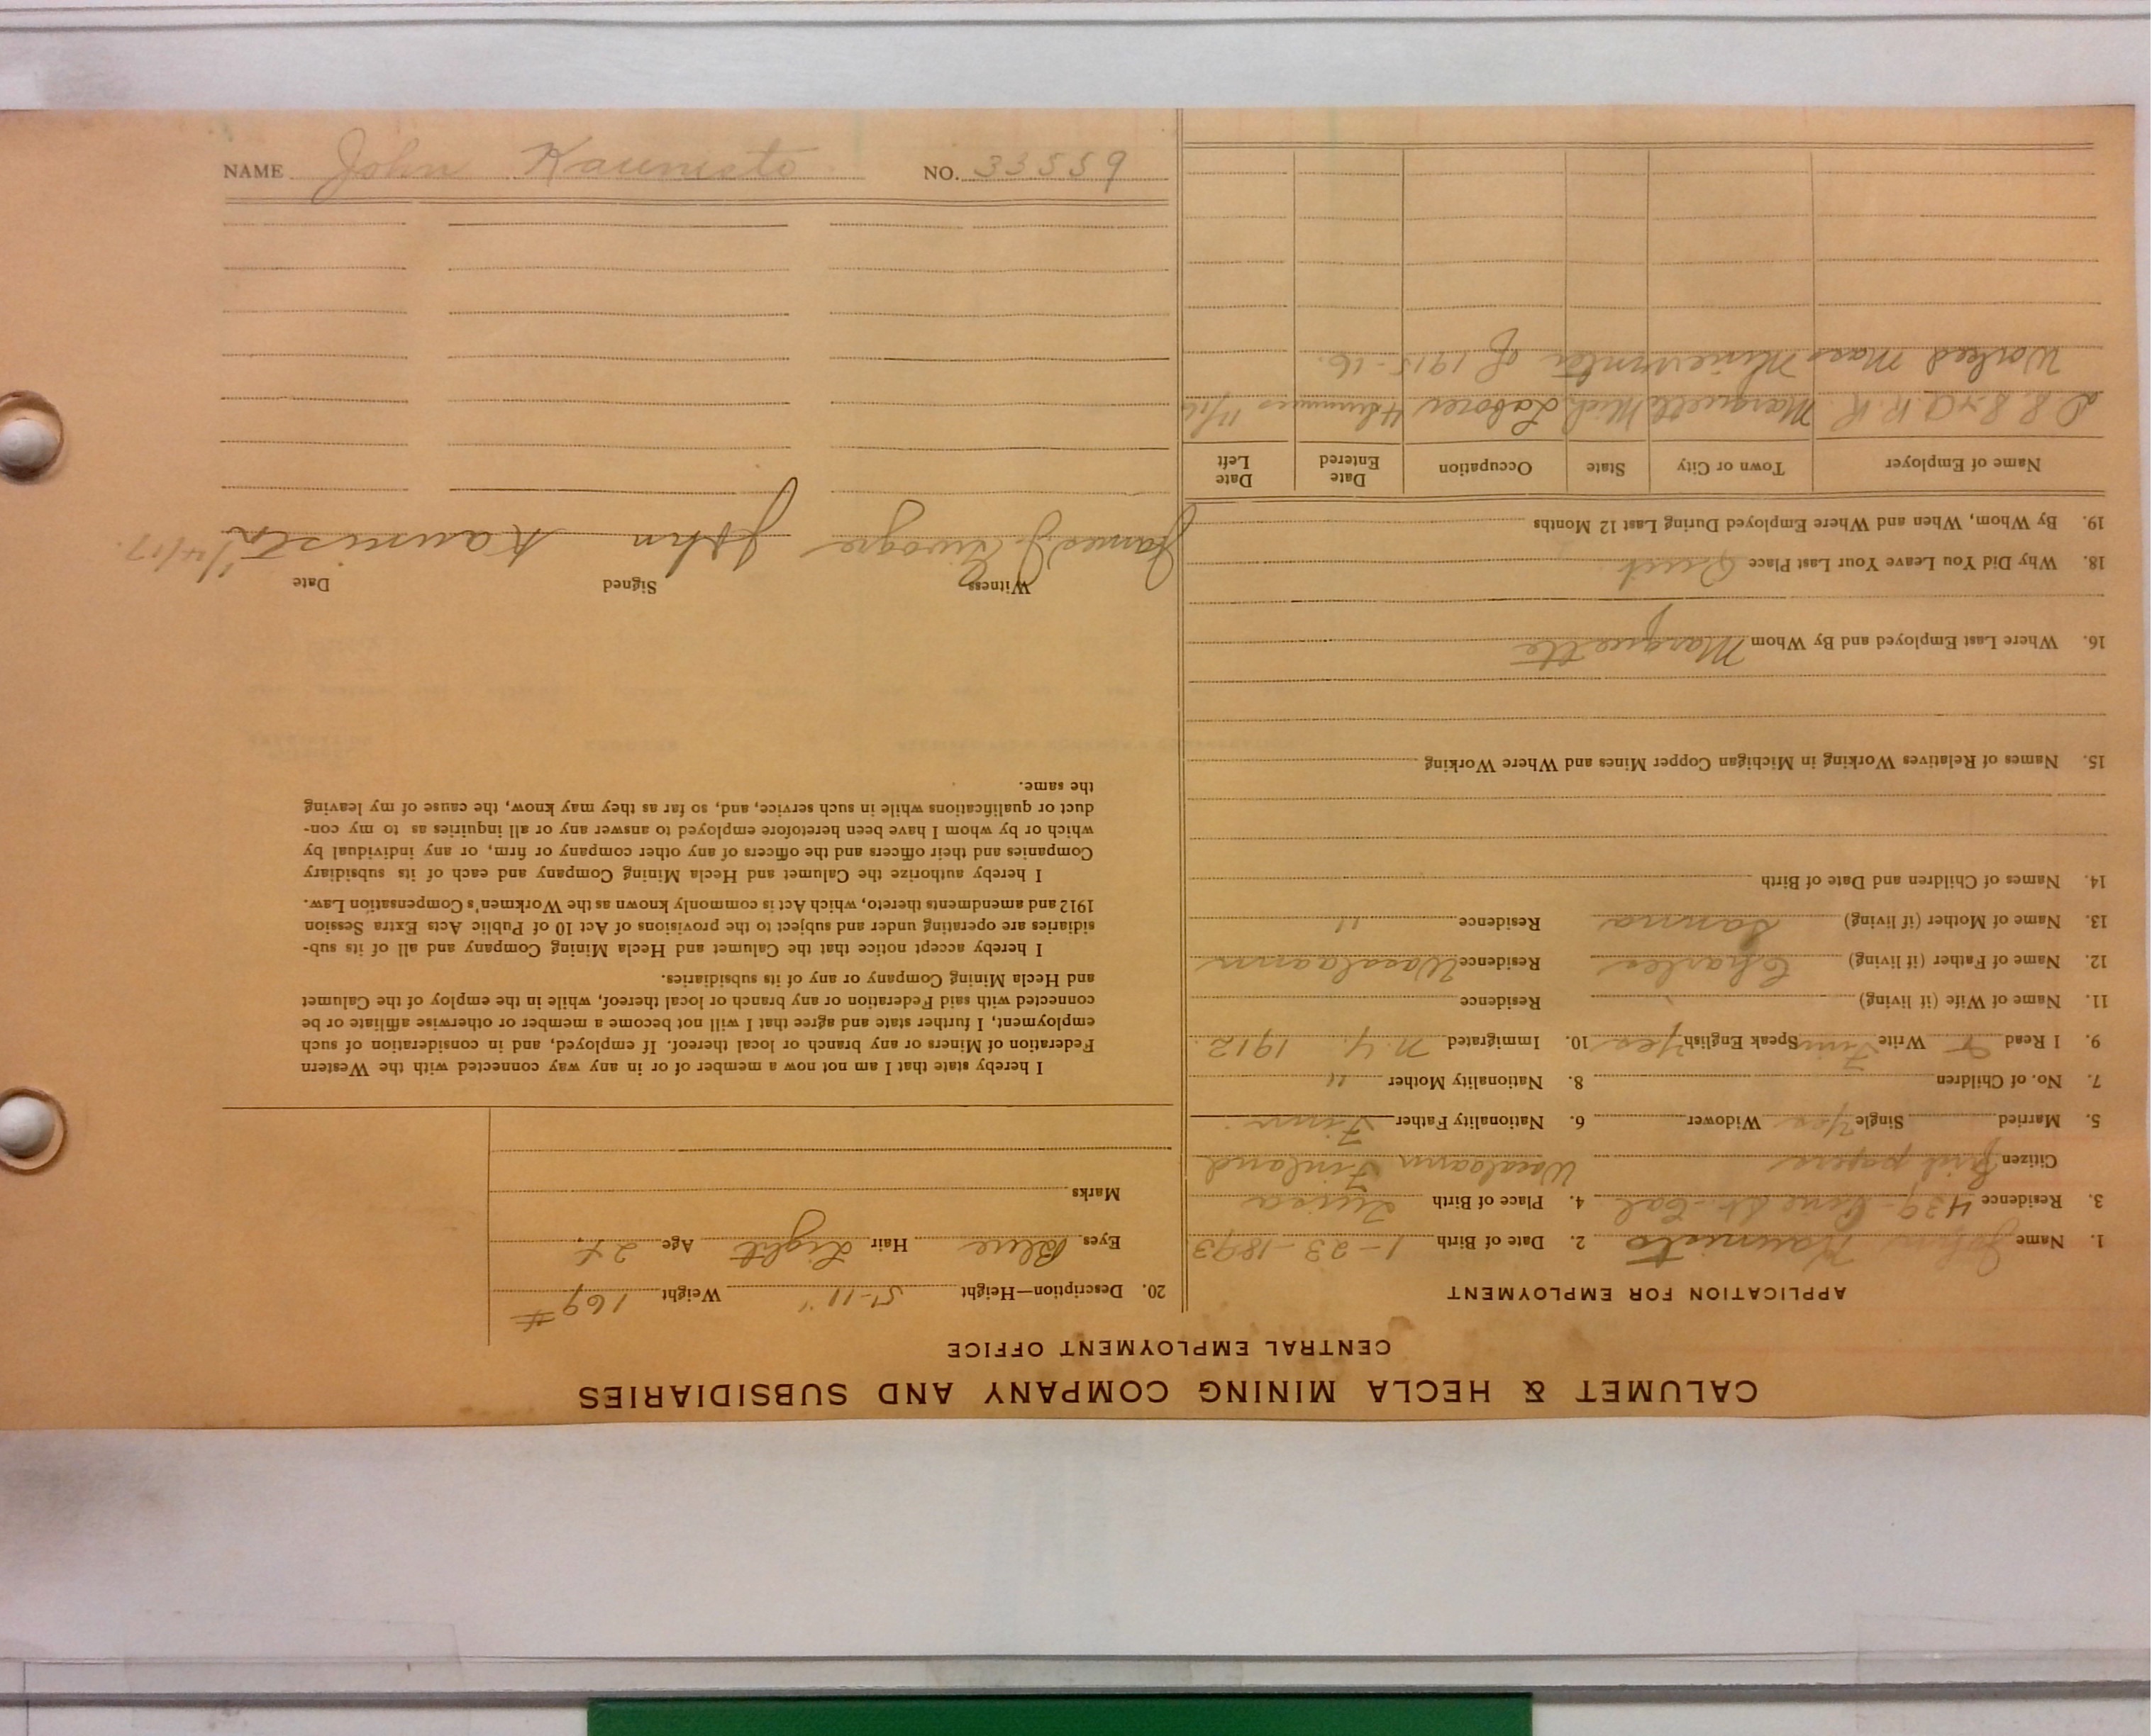 CALUMET & HECLA MINING COMPANY AND SUBSIDIARIES
CENTRAL EMPLOYMENT OFFICE
APPLICATION FOR EMPLOYMENT
1. Name John Kaunisto 2. Date of Birth 1-23-1893
3. Residence 439-Pine St-Cal 4. Place of Birth
Citizen first papers Waasaann Finland
5. Married Single Yes Widower 6. Nationality Father Finn
7. No. of Children 8. Nationality Mother "
9. I Read & Write Finn Speak English Yes 10. Immigrated N.Y. 1912
11. Name of Wife (if living) Residence
12. Name of Father (if living) Charles Residence Waasaann
13. Name of Mother (if living) Sanna Residence "
14. Names of Children and Date of Birth
15. Names of Relatives Working in Michigan Copper Mines and Where Working
16. Where Last Employed and By Whom Marquette
18. Why Did You Leave Your Last Place Quit
19. By Whom, When and Where Employed During Last 12 Months
Name of Employer Town or City State Occupation Date Entered Date Left
D.S.S. & A R.R. Marquette Mich Laborer 4 Summers 11/16
Worked Mass Mine winter of 1915-16.
20. Description—Height 5'-11" Weight 169#
Eyes Blue Hair Light Age 24
Marks
I hereby state that I am not now a member of or in any way connected with the Western
Federation of Miners or any branch or local thereof. If employed, and in consideration of such
employment, I further state and agree that I will not become a member or otherwise affiliate or be
connected with said Federation or any branch or local thereof, while in the employ of the Calumet
and Hecla Mining Company or any of its subsidiaries.
I hereby accept notice that the Calumet and Hecla Mining Company and all of its sub-
sidiaries are operating under and subject to the provisions of Act 10 of Public Acts Extra Session
1912 and amendments thereto, which Act is commonly known as the Workmen's Compensation Law.
I hereby authorize the Calumet and Hecla Mining Company and each of its subsidiary
Companies and their officers and the officers of any other company or firm, or any individual by
which or by whom I have been heretofore employed to answer any or all inquiries as to my con-
duct or qualifications while in such service, and, so far as they may know, the cause of my leaving
the same.
Witness Signed Date
James J. John Kaunisto 1/4/17.
NAME John Kaunisto NO. 33559